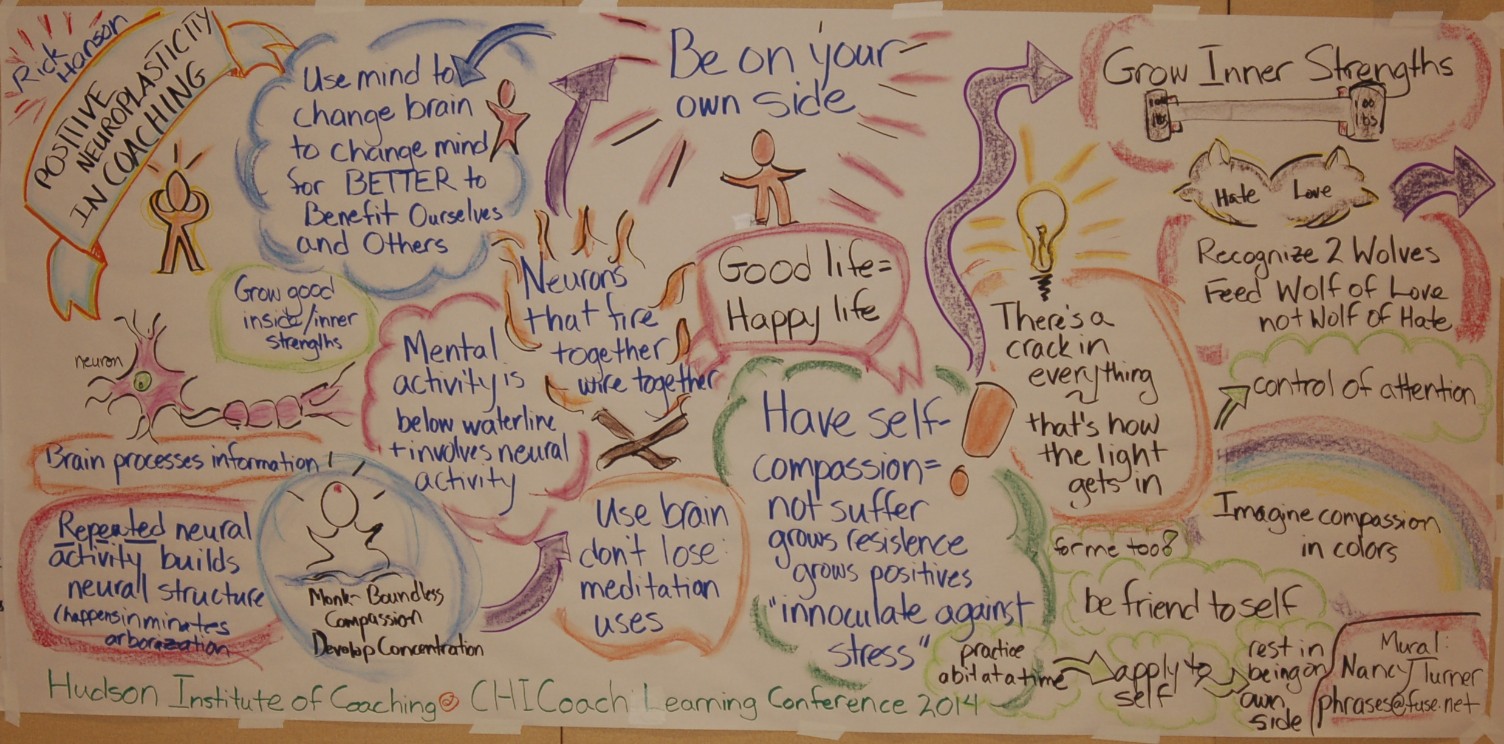 Rick
Hanson
POSITIVE
NEUROPLASTICITY
IN COACHING
Use mind to
change brain
to change mind
for BETTER to
Benefit Ourselves
and Others
Be on your
own side
Grow Inner Strengths
100
LBS
100
LBS
Hate
Love
Recognize 2 Wolves
Feed Wolf of Love
not Wolf of Hate
Grow good
inside/inner
strengths
neuron
Brain processes information
Repeated neural
activity builds
neural structure
(happens in minutes
arborization
Monk-Boundless
Compassion
Develop Concentration
Mental
activity is
below waterline
+ involves neural
activity
Neurons
that fire
together
wire together
Good life=
Happy life
Use brain
don't lose
meditation
uses
Have self-
compassion=
not suffer
grows resislence
grows positives
"innoculate against
stress"
There's a
crack in
everything
~
that's how
the light
gets in
control of attention
Imagine compassion
in colors
for me too?
be friend to self
practice
a bit at a time
apply to
self
rest in
being on
own
side
Mural:
Nancy Turner
phrases@fuse.net
Hudson Institute of Coaching CHICoach Learning Conference 2014